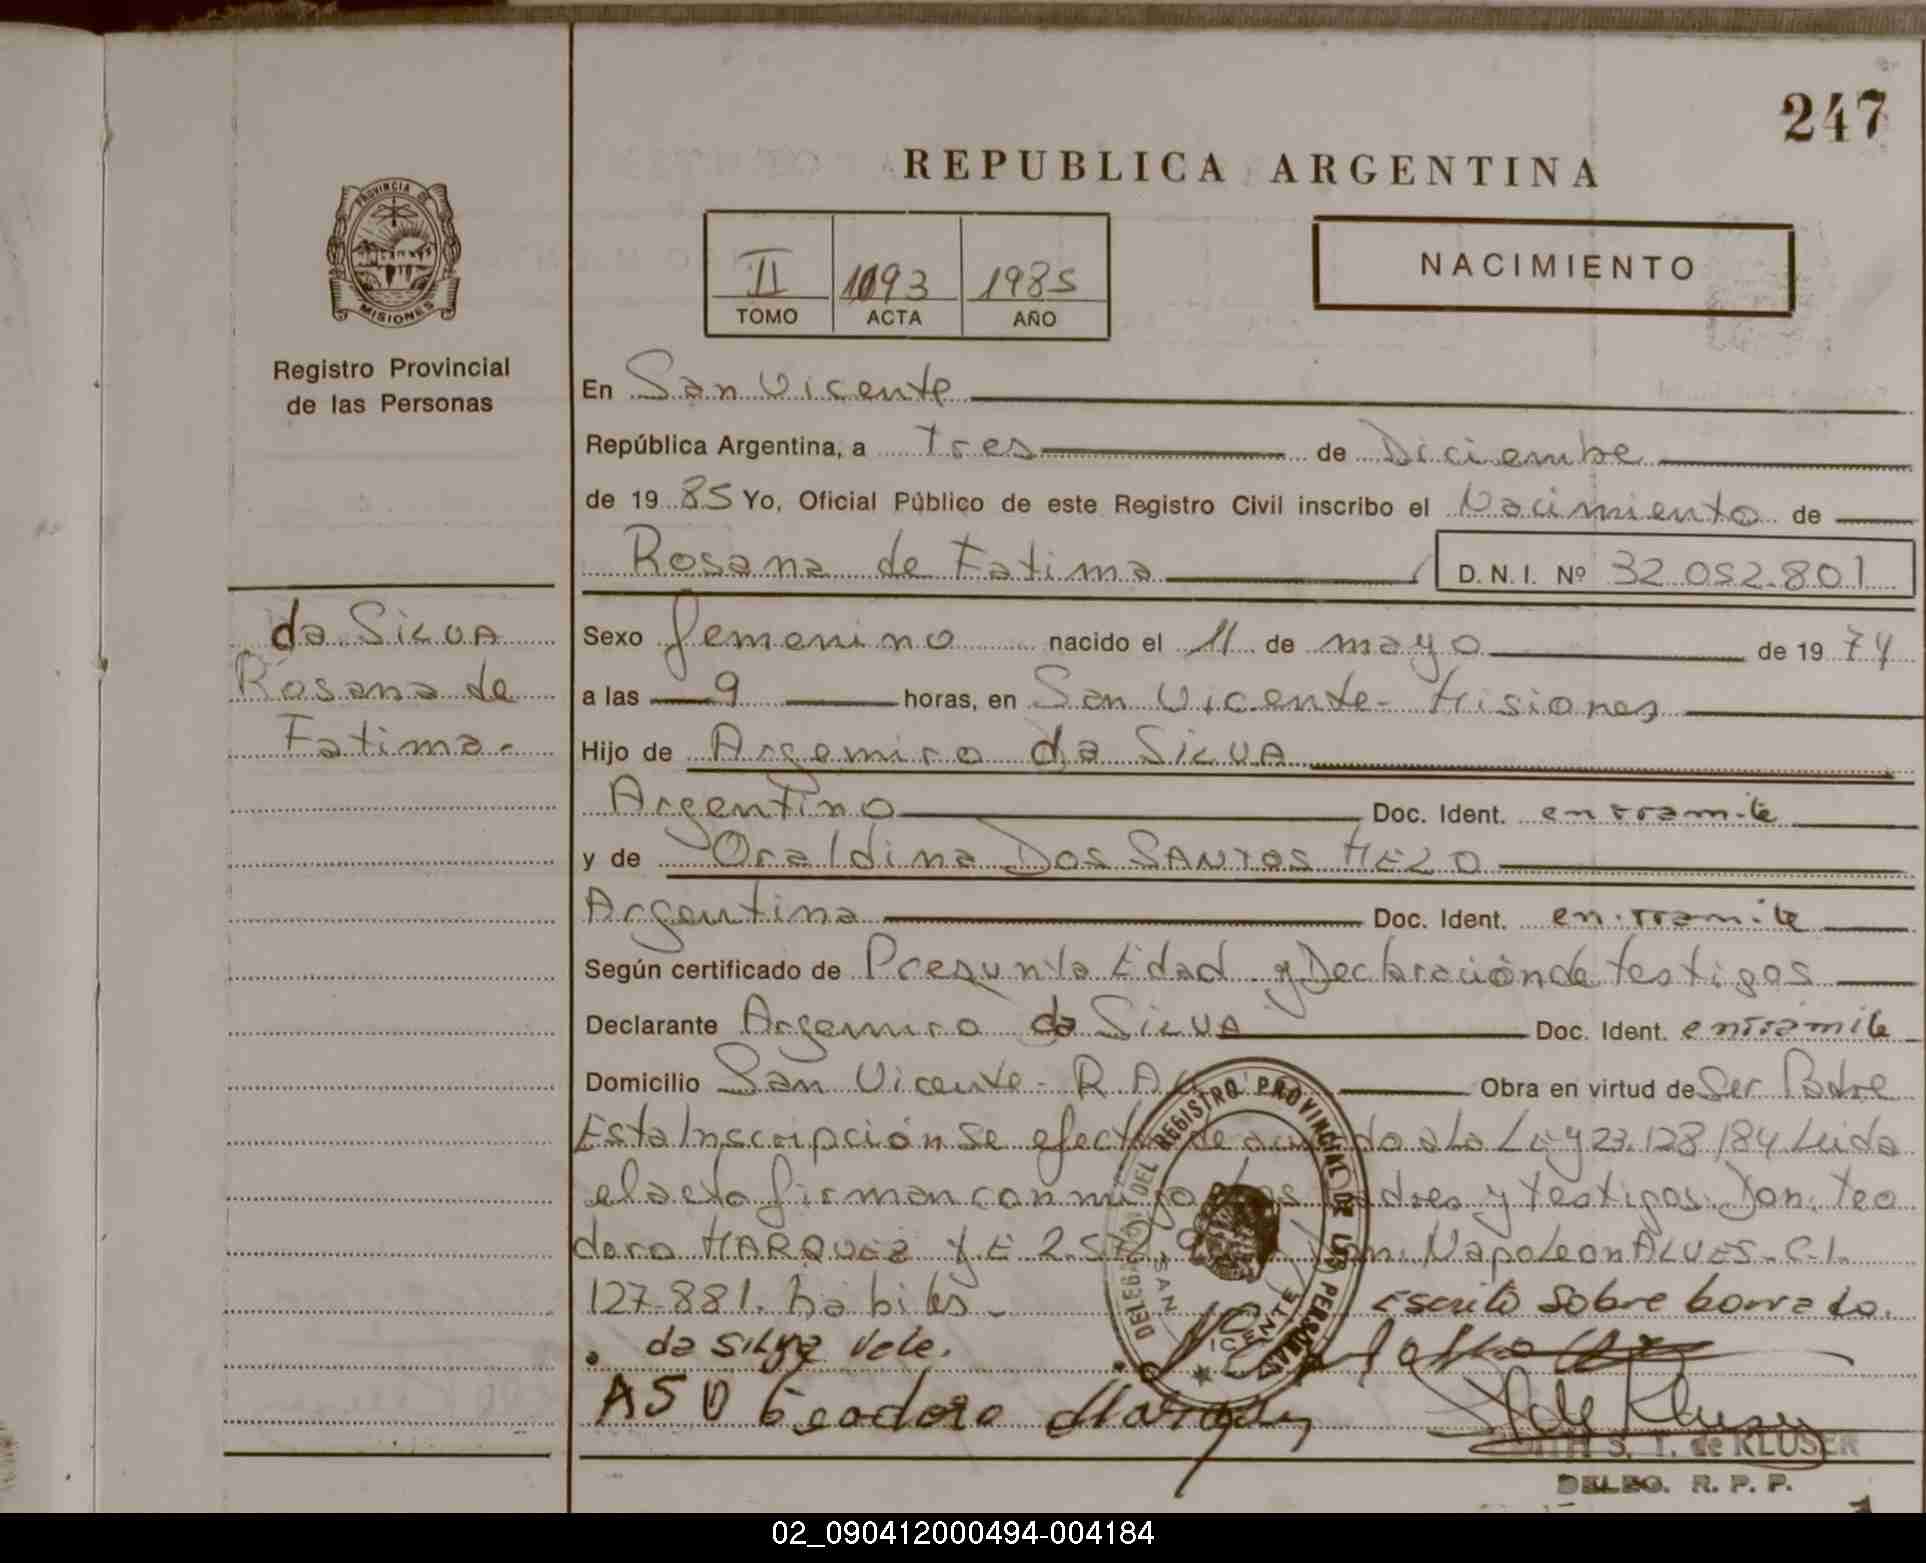 247
REPUBLICA ARGENTINA
PROVINCIA DE
MISIONES
II 1093 1985
TOMO ACTA AÑO
NACIMIENTO
Registro Provincial
de las Personas
En San Vicente
República Argentina, a tres de Diciembre
de 1985 Yo, Oficial Público de este Registro Civil inscribo el Nacimiento de
Rosana de Fatima D. N. I. Nº 32.052.801
da SILVA
Rosana de
Fatima.-
Sexo femenino nacido el 11 de mayo de 1974
a las 9 horas, en San Vicente- Misiones
Hijo de Argemiro da SILVA
Argentino Doc. Ident. en tramite
y de Oraldina DOS SANTOS MELO
Argentina Doc. Ident. en tramite
Según certificado de Presunta Edad y Declaración de testigos
Declarante Argemiro da SILVA Doc. Ident. en tramite
Domicilio San Vicente- R.A. Obra en virtud de Ser Padre
Esta Inscripción se efectua de acuerdo a La Ley 23.128/84 Leida
el acta firman con migo los Padres y testigos. Don: Teo
doro MARQUEZ Y E 2.572.9 Don: Napoleon ALVES - C.I.
127.881. habiles - Escrito sobre borrado.
da Silva Vale.
ASD teodoro Marquez
DELEGACION DEL REGISTRO PROVINCIAL DE LAS PERSONAS
SAN VICENTE
S. T. de KLUSER
DELEG. R. P. P.
02_090412000494-004184